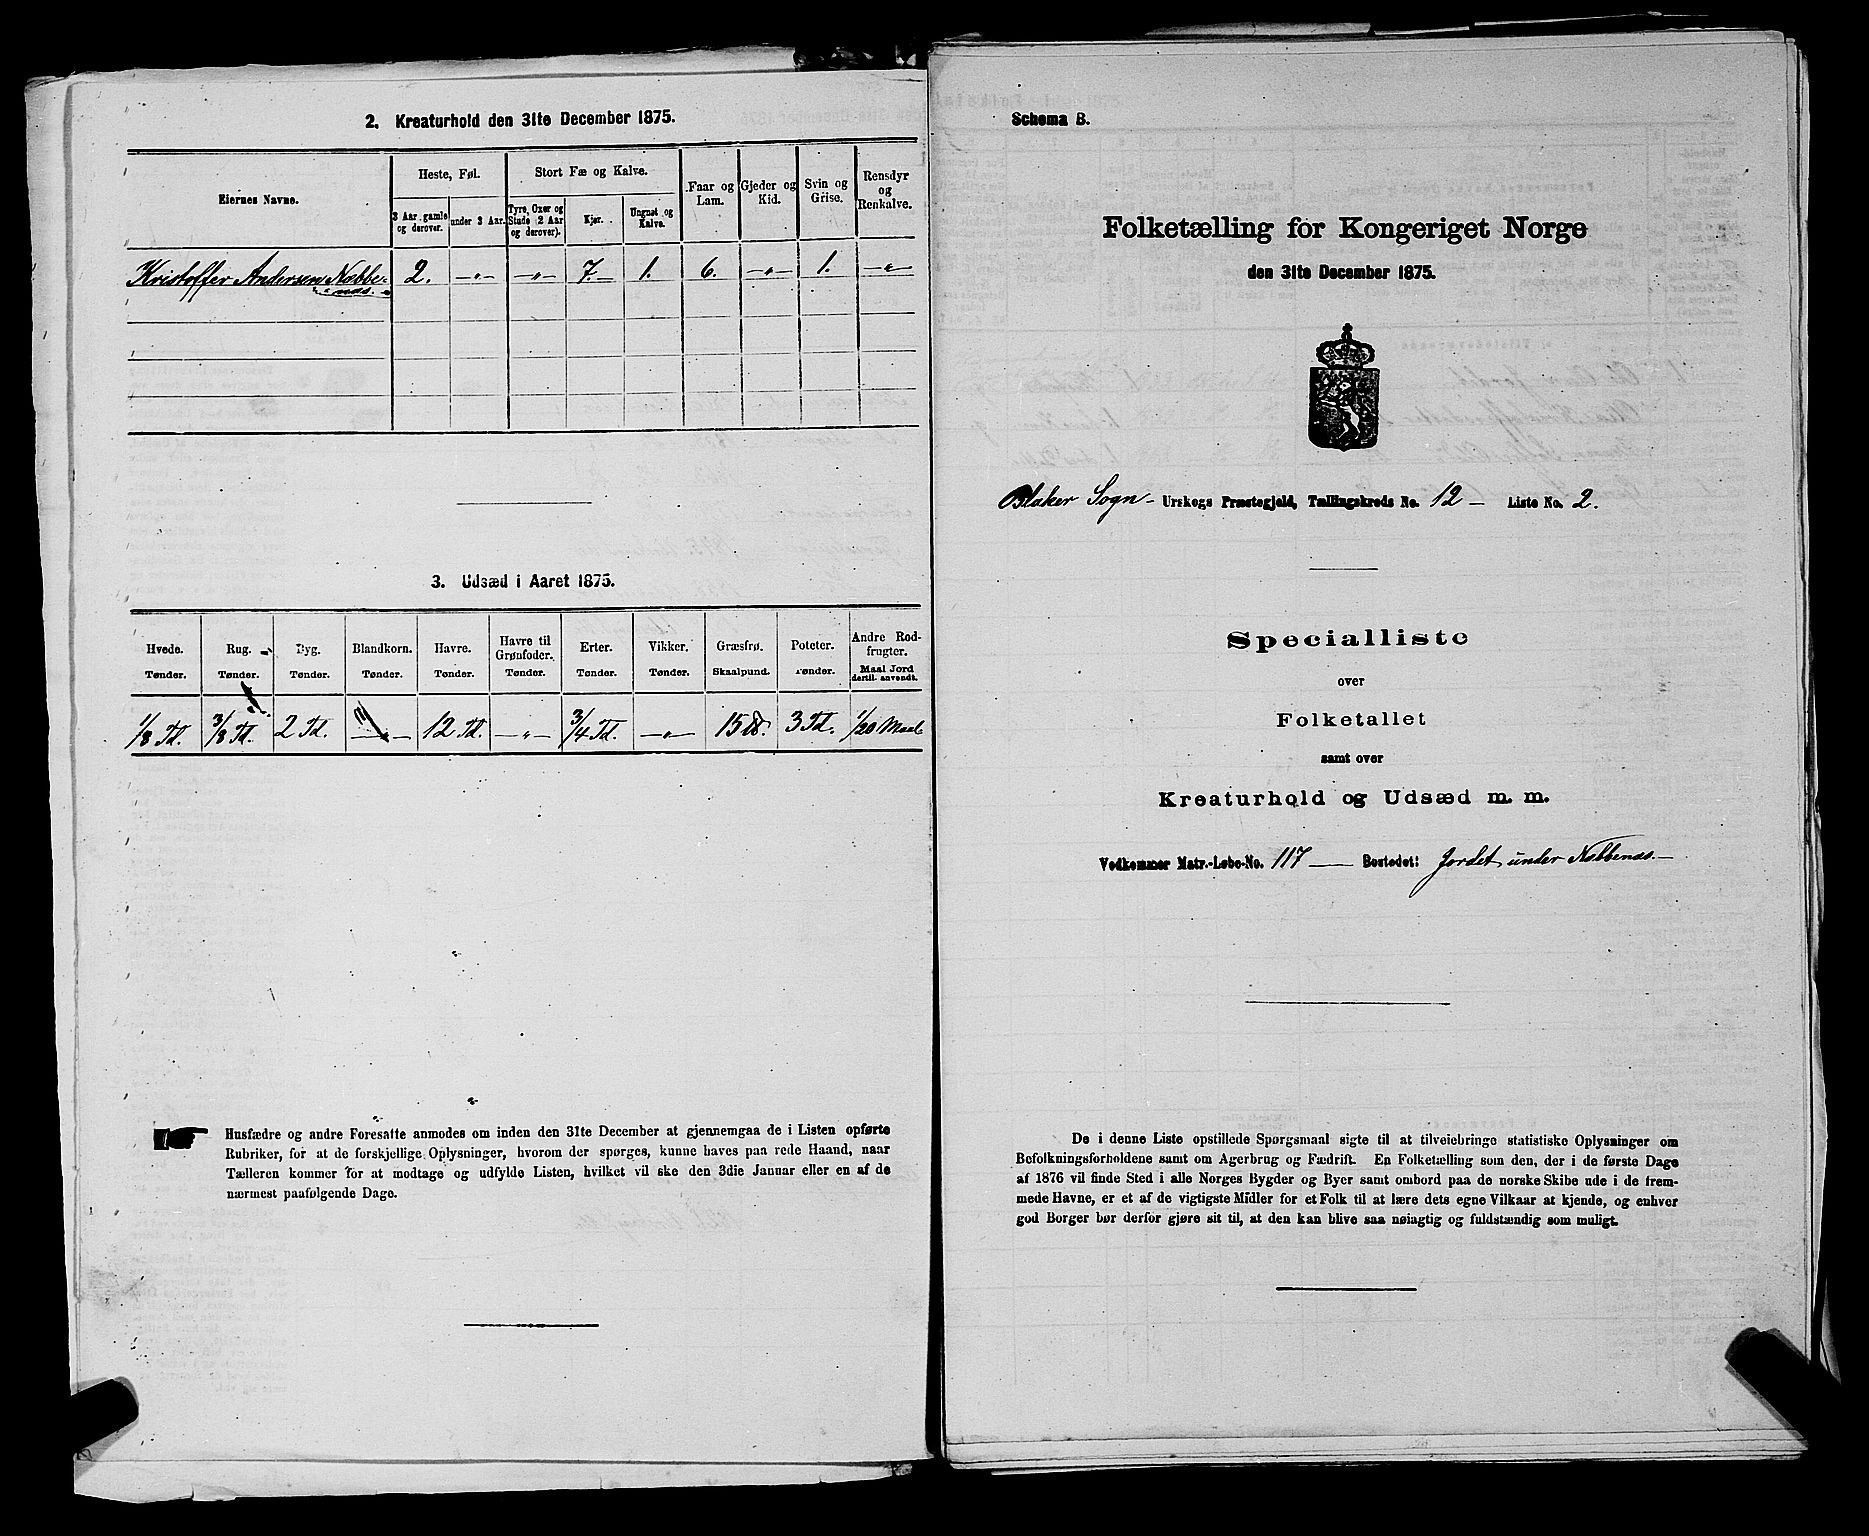 2. Kreaturhold den 31te December 1875.
Eiernes Navne.
Heste, Føl.
3 Aar gamle og derover.
under 3 Aar.
Stort Fæ og Kalve.
Tyre, Oxer og Stude (2 Aar og derover).
Kjør.
Ungnøt og Kalve.
Faar og Lam.
Gjeder og Kid.
Svin og Grise.
Rensdyr og Renkalve.
Kristoffer Andersen Næbbe-
næs. 2. -"- -"- 7. 1. 6. -"- 1. -"-
3. Udsæd i Aaret 1875.
Hvede. Rug. Byg. Blandkorn. Havre. Havre til Grønfoder. Erter. Vikker. Græsfrø. Poteter. Andre Rodfrugter.
Tønder. Tønder. Tønder. Tønder. Tønder. Tønder. Tønder. Tønder. Skaalpund. Tønder. Maal Jord dertil anvendt.
1/8 Td. 3/8 Td. 2 Td. -"- 12 Td. -"- 3/4 Td. -"- 15 ℔. 3 Td. 1/20 Maal
Husfædre og andre Foresatte anmodes om inden den 31te December at gjennemgaa de i Listen opførte
Rubriker, for at de forskjellige Oplysninger, hvorom der spørges, kunne haves paa rede Haand, naar
Tælleren kommer for at modtage og udfylde Listen, hvilket vil ske den 3die Januar eller en af de
nærmest paafølgende Dage.
Schema B.
Folketælling for Kongeriget Norge
den 31te December 1875.
Blaker Sogn - Urskogs Præstegjeld, Tællingskreds No. 12 - Liste No. 2.
Specialliste
over
Folketallet
samt over
Kreaturhold og Udsæd m. m.
Vedkommer Matr.-Løbe-No. 117 - Bostedet: Jordet under Næbbenæs. -
De i denne Liste opstillede Spørgsmaal sigte til at tilveiebringe statistiske Oplysninger om
Befolkningsforholdene samt om Agerbrug og Fædrift. En Folketælling som den, der i de første Dage
af 1876 vil finde Sted i alle Norges Bygder og Byer samt ombord paa de norske Skibe ude i de frem-
mede Havne, er et af de vigtigste Midler for et Folk til at lære dets egne Vilkaar at kjende, og enhver
god Borger bør derfor gjøre sit til, at den kan blive saa nøiagtig og fuldstændig som muligt.